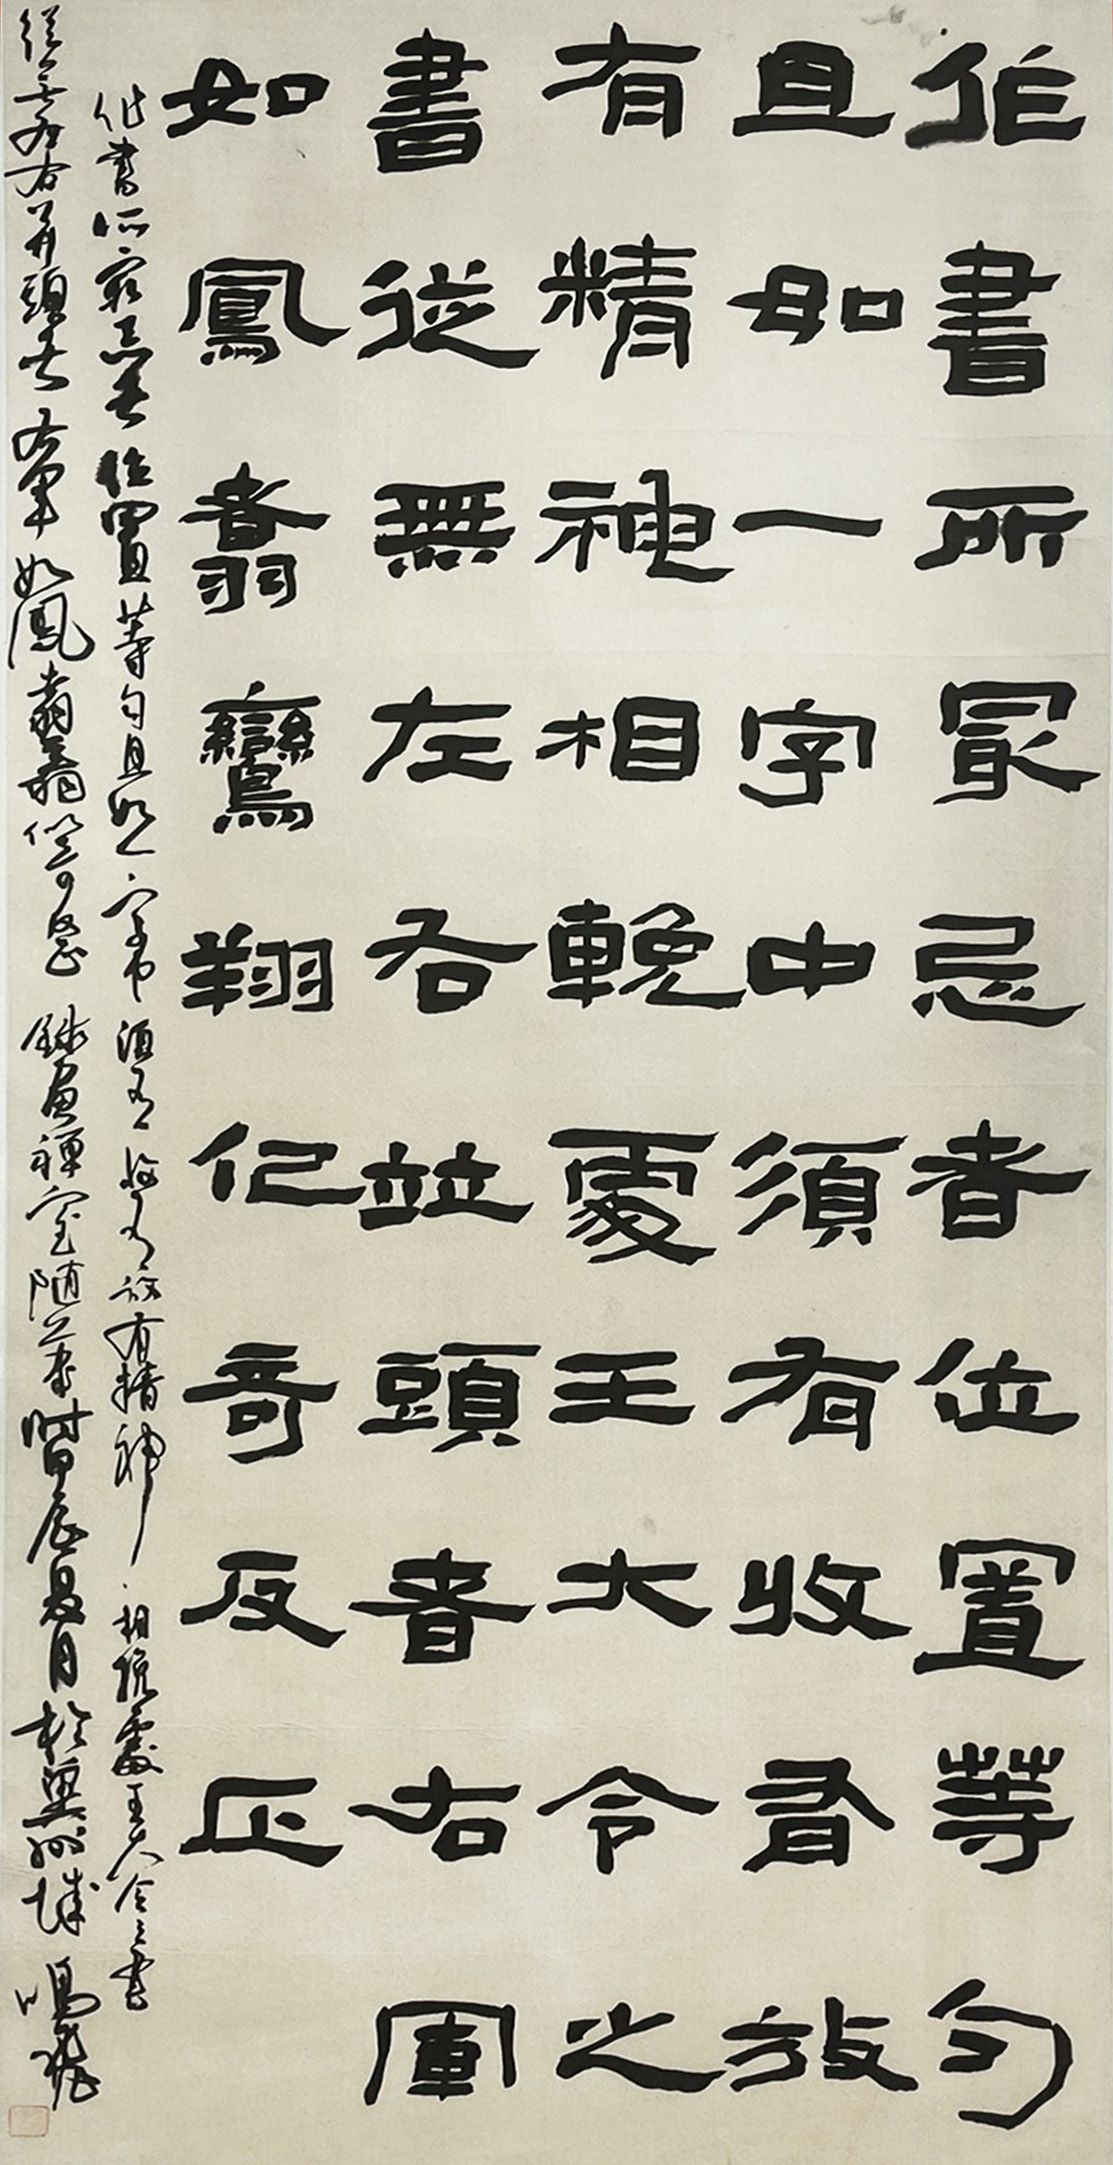 作書所冣忌者位置等勻
且如一字中須有收有放
有精神相輓處王大令之
書從無左右並頭者右軍
如鳳翥鸞翔似奇反正
作書所最忌者位置等勻且如一字中須有收有放有精神相挽處王大令之書
從無左右并頭者右軍如鳳翥鸞翔似奇反正錄畫禪室隨筆時甲辰夏月於州城鳴